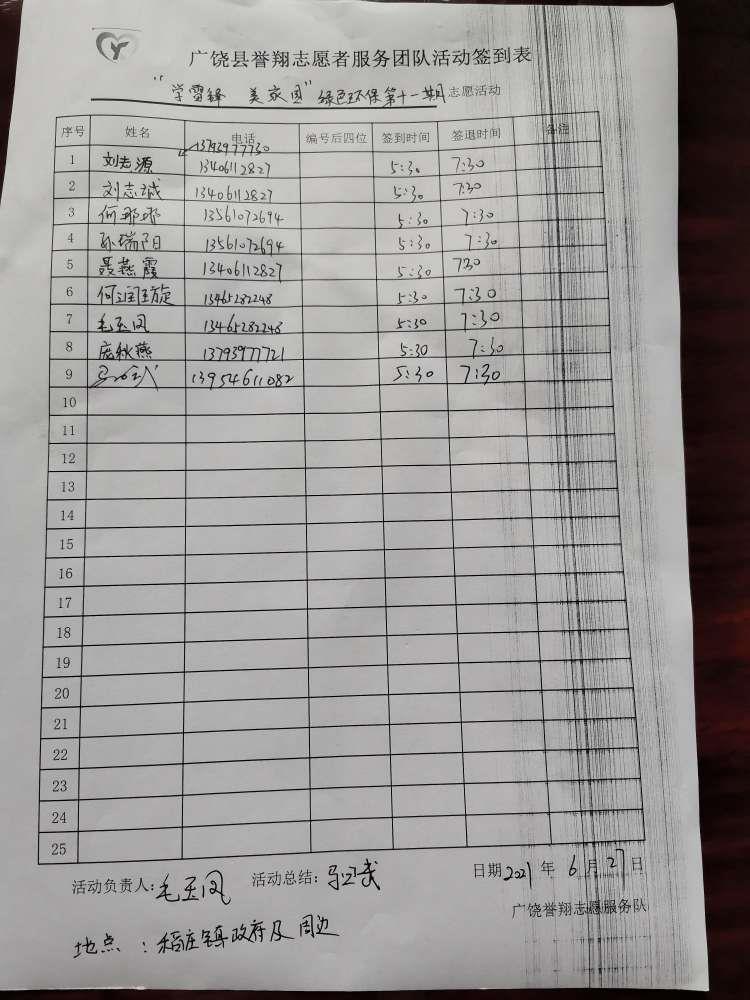 广饶县誉翔志愿者服务团队活动签到表
“学雷锋 美家园”绿色环保第十一期志愿活动
序号 姓名 电话 编号后四位 签到时间 签退时间 备注
13793977730
1 刘志源 13406112827 5:30 7:30
2 刘志诚 13406112827 5:30 7:30
3 何那那 13561072694 5:30 7:30
4 孙瑞阳 13561072694 5:30 7:30
5 聂燕霞 13406112827 5:30 730
6 何 旋 13465282248 5:30 7:30
7 毛玉凤 13465282248 5:30 7:30
8 庞秋燕 13793977721 5:30 7:30
9 13954611082 5:30 7:30
10
11
12
13
14
15
16
17
18
19
20
21
22
23
24
25
活动负责人:毛玉凤 活动总结: 日期2021年6月27日
广饶誉翔志愿服务队
地点:稻庄镇政府及周边